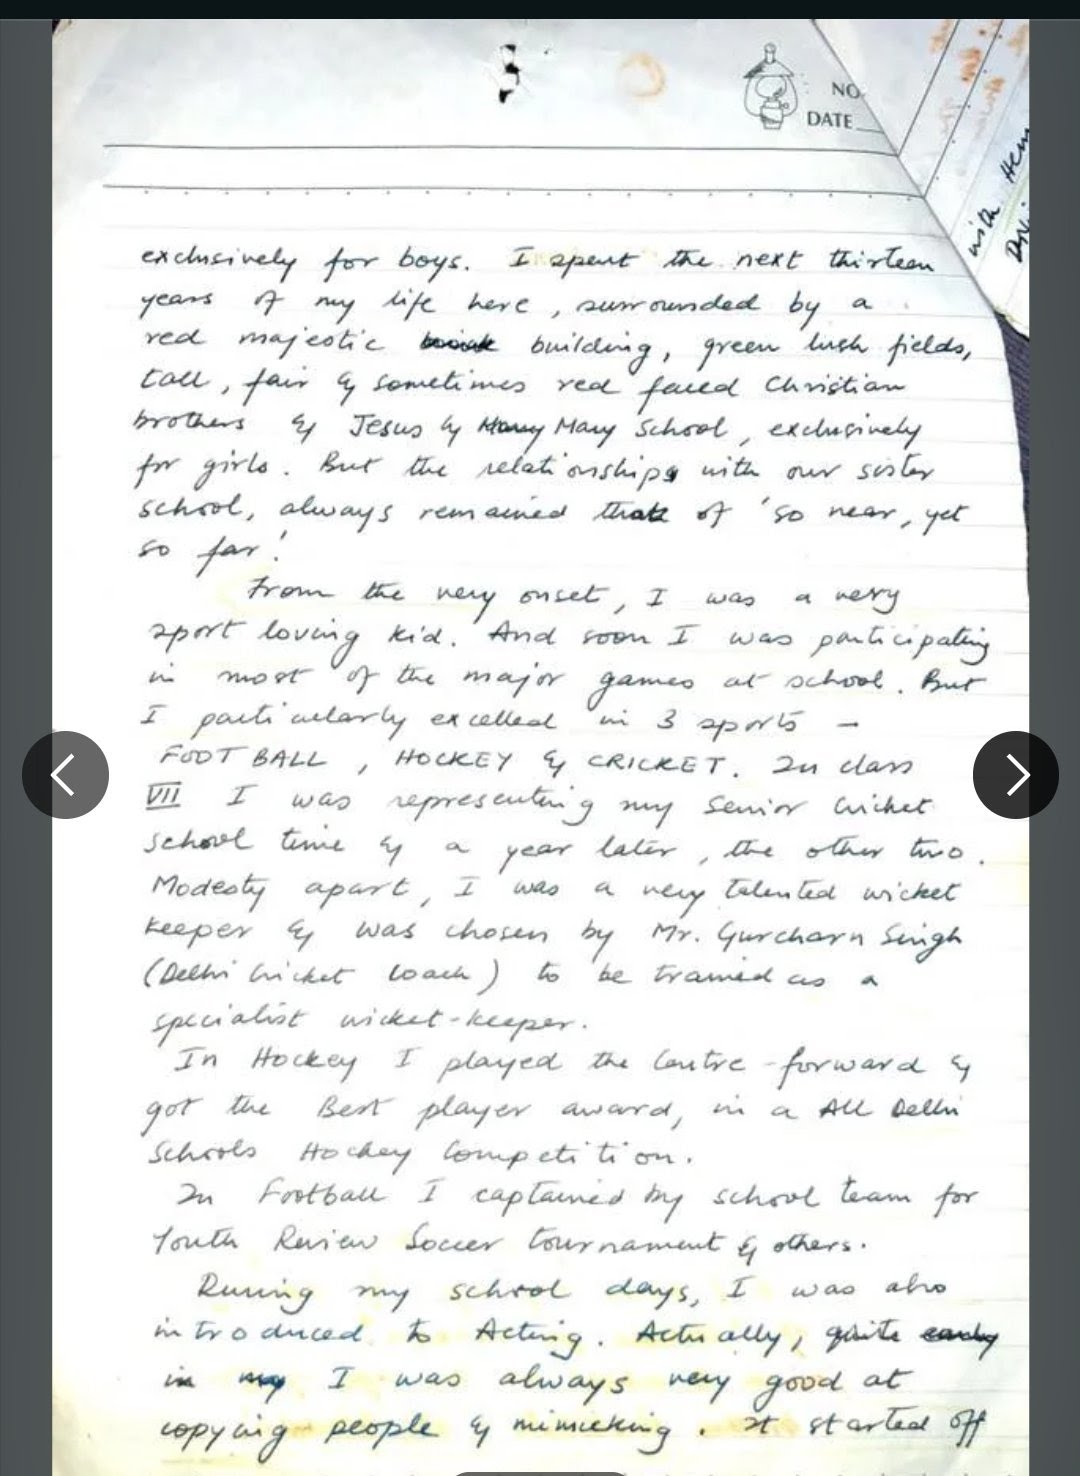 NO.
DATE
with Hem
exclusively for boys. I spent the next thirteen
years of my life here, surrounded by a
red majestic building, green lush fields,
tall, fair & sometimes red faced Christian
brothers & Jesus & Mary School, exclusively
for girls. But the relationships with our sister
school, always remained that of 'so near, yet
so far!
From the very onset, I was a very
sport loving kid. And soon I was participating
in most of the major games at school. But
I particularly excelled in 3 sports -
FOOTBALL, HOCKEY & CRICKET. In class
VII I was representing my Senior Cricket
school time & a year later, the other two.
Modesty apart, I was a very talented wicket
keeper & was chosen by Mr. Gurcharn Singh
(Delhi Cricket Coach) to be trained as a
specialist wicket-keeper.
In Hockey I played the Centre-forward &
got the Best player award, in a All Delhi
Schools Hockey Competition.
In Football I captained my school team for
Youth Review Soccer tournament & others.
During my school days, I was also
introduced to Acting. Actually, quite early
in my I was always very good at
copying people & mimicking. It started off